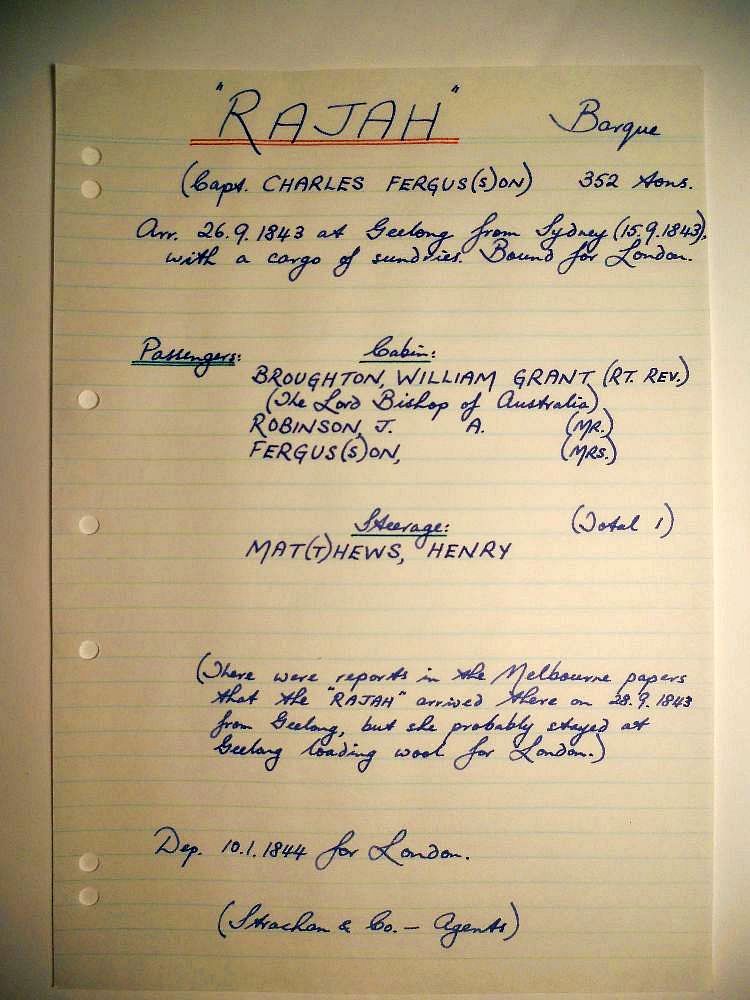 "RAJAH" Barque
(Capt. CHARLES FERGUS(S)ON) 352 tons.
Arr. 26.9.1843 at Geelong from Sydney (15.9.1843),
with a cargo of sundries. Bound for London.
Passengers: Cabin:
BROUGHTON, WILLIAM GRANT (RT. REV.)
(The Lord Bishop of Australia)
ROBINSON, J. A. (MR.)
FERGUS(S)ON, (MRS.)
Steerage: (Total 1)
MAT(T)HEWS, HENRY
(There were reports in the Melbourne papers
that the "RAJAH" arrived there on 28.9.1843
from Geelong, but she probably stayed at
Geelong loading wool for London.)
Dep. 10.1.1844 for London.
(Strachan & Co. - Agents)